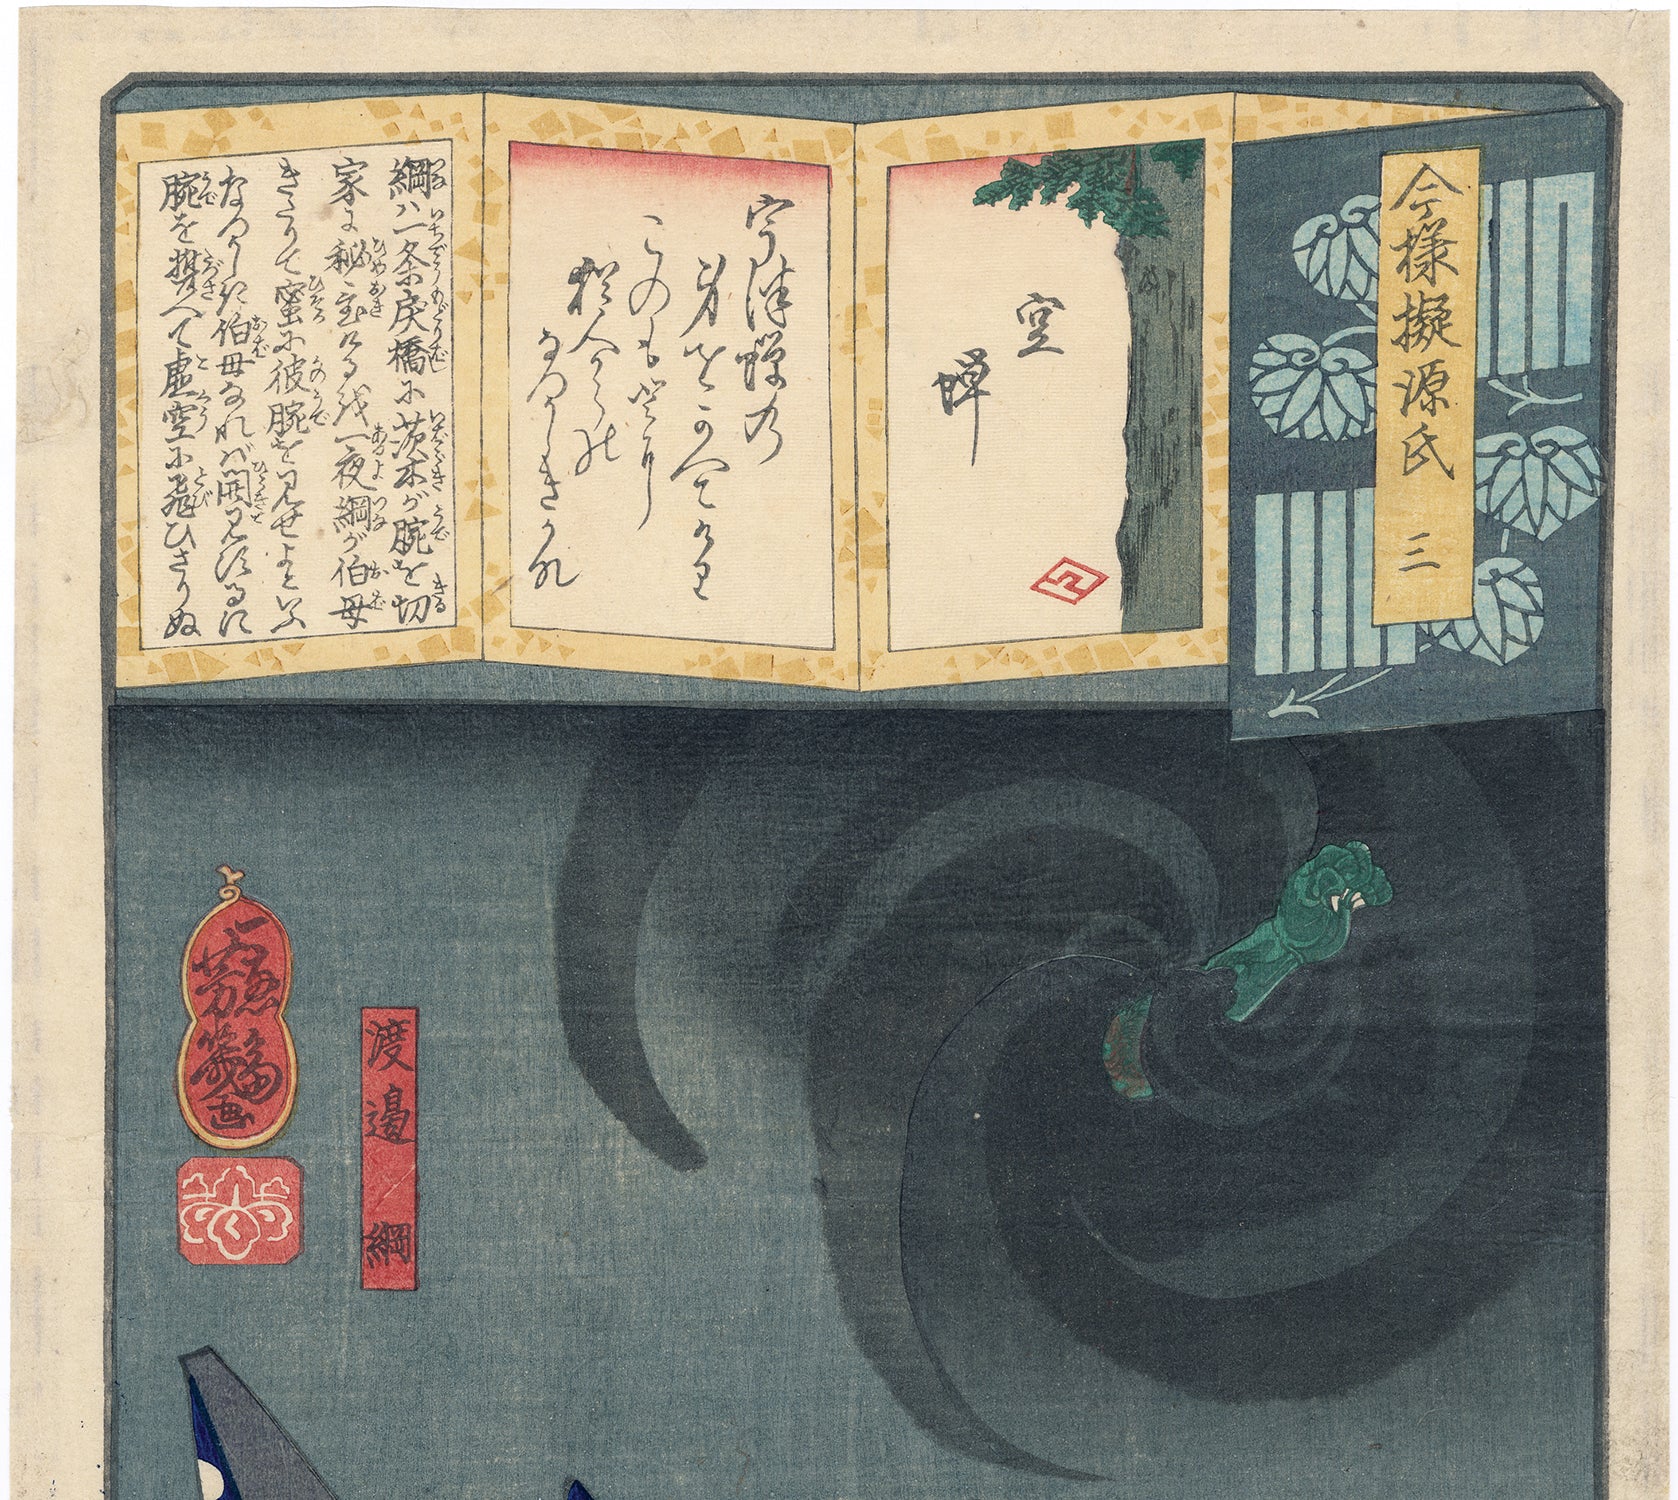 今様擬源氏 三
空
蝉
宇津蝉乃
身をかへてける
このもとに
猶人からの
なつかしきかな
綱ハ一条戻橋に茨木が腕を切
家に秘め置ける越一夜綱が伯母
きたりて蜜に彼腕を見せよといふ
なつかしき伯母なれバ開見するに
腕を携へて虚空に飛ひさりぬ
一蕙齋芳幾画
渡邊綱